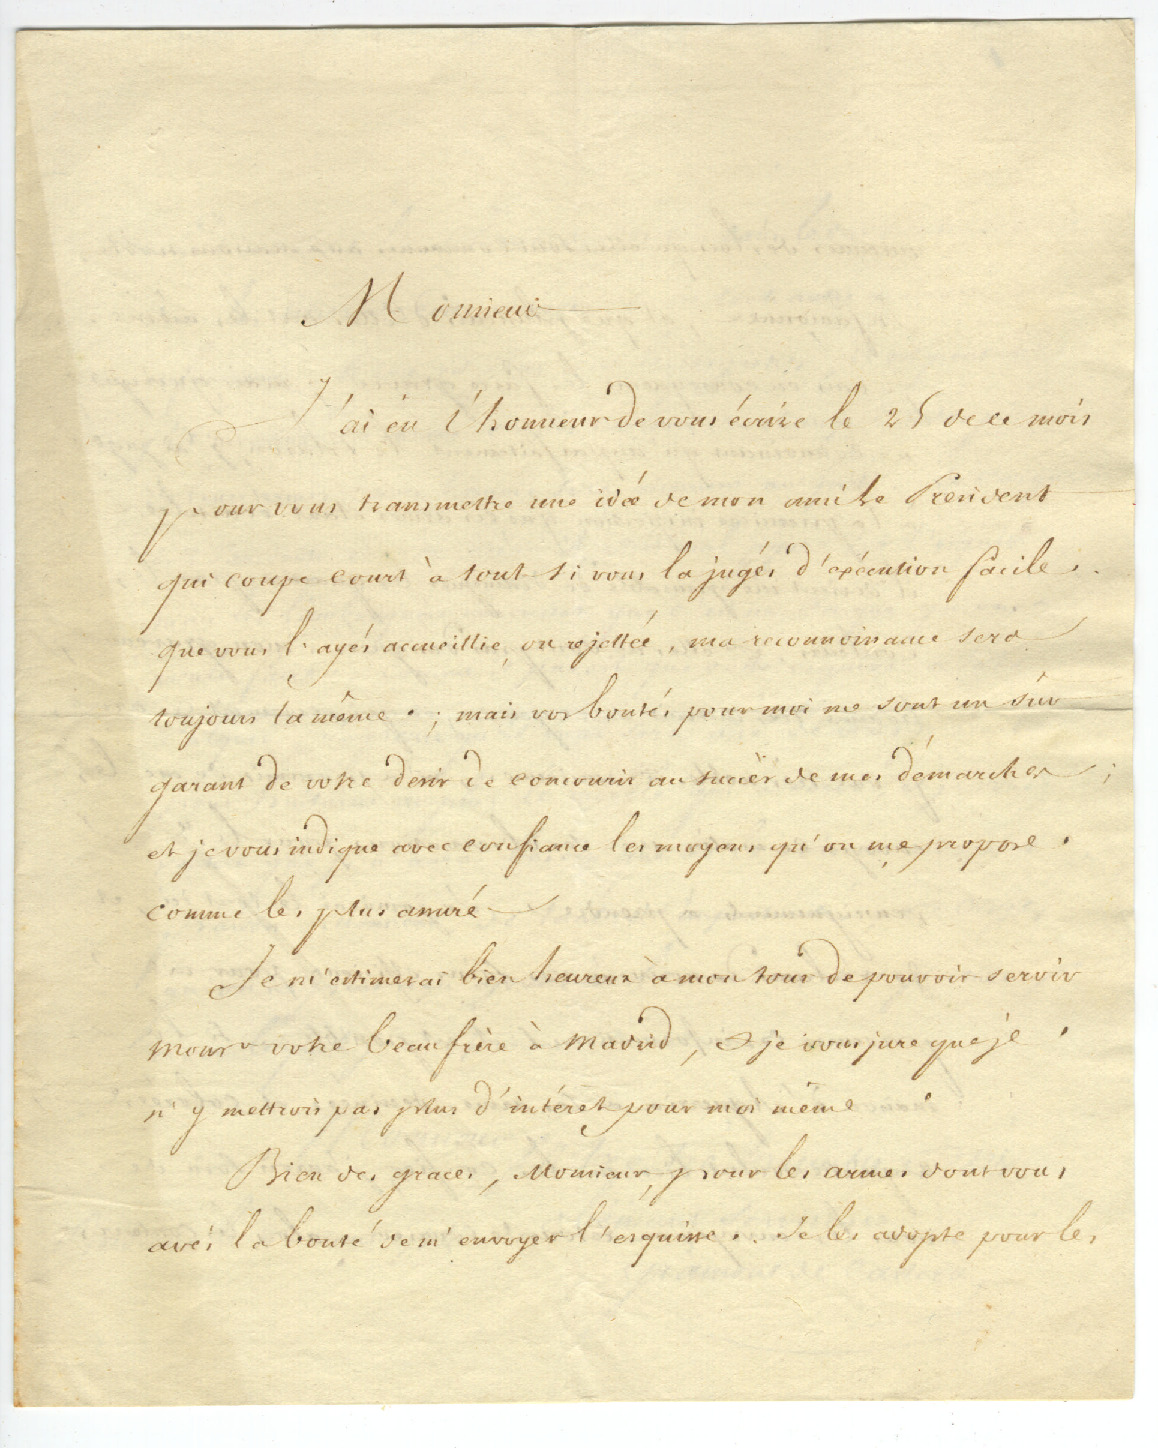 Monsieur
J'ai éu l'honneur de vous écrire le 25 de ce mois
pour vous transmettre une idée de mon ami le President
qui coupe court à tout si vous la jugés d'exécution facile.
que vous l'ayés accueillie, ou rejettée, ma reconnoissance sera
toujours la même ; mais vos bontés pour moi me sont un sûr
garant de votre desir de concourir au succès de mes démarches ;
et je vous indique avec confiance les moyens qu'on me propose
comme les plus assuré
Je m'estimerai bien heureux à mon tour de pouvoir servir
Monsr votre beaufrère à Madrid, & je vous jure que je
n'y mettrois pas plus d'intéret pour moi même
Bien des graces, Monsieur, pour les armes dont vous
avés la bonté de m'envoyer l'esquisse. Je les adopte pour les